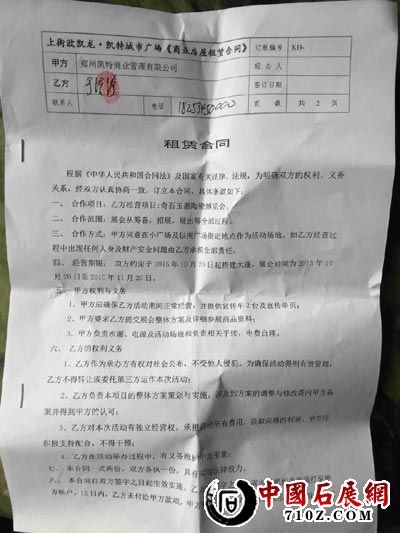 上街欧凯龙·凯特城市广场《商业房屋租赁合同》
订板编号
KH-
甲方
郑州凯特商业管理有限公司
经办人
乙方
签订日期
联系人
电话
页数
共 2 页
租赁合同
根据《中华人民共和国合同法》及国家有关法律、法规，为明确双方的权利、义务
关系，经双方认真协商一致，订立本合同，具体条款如下：
一、合作项目：乙方经营项目：奇石玉器陶瓷博览会。
二、合作范围：展会从筹备，招展，展出等全部过程。
三、合作方式：甲方同意在小广场及以南广场指定地点作为活动场地，如乙方经营过
程中出现任何人身及财产安全问题由乙方承担全部责任。
四、经包期限：双方约定于2015年10月20日起搭建大蓬，展会时间为2015年10
月20日至2015年11月20日。
五、甲方权利与义务
1、甲方应确保乙方活动期间正常经营，并提供宣传车2台及宣传单页；
2、甲方要求乙方提交展会整体方案及详细参展商品资料；
3、甲方负责水源、电源及活动场地和负责相关手续，电费自理。
六、乙方的权利义务
1、乙方作为承办方有权对社会公布，不受他人侵犯。为确保活动得到有效管理，
乙方不得转让或委托第三方运作本次活动；
2、乙方负责本项目的整体方案策划与实施，涉及到方案的调整与修改需向甲方备
案并得到甲方的认可；
3、乙方对本次活动有独立经营权，承担活动所有费用，获取应得的利润，甲方应
积极支持配合，不得干预；
4、乙方在活动举办过程中，有义务维护甲方形象；
七、本合同一式两份，双方各执一份，具有同等法律效力。
八、本合同自双方签字之日起生效实施，
方帐户，15日内，乙方未付给甲方款项，
中國石展網
7102.COM